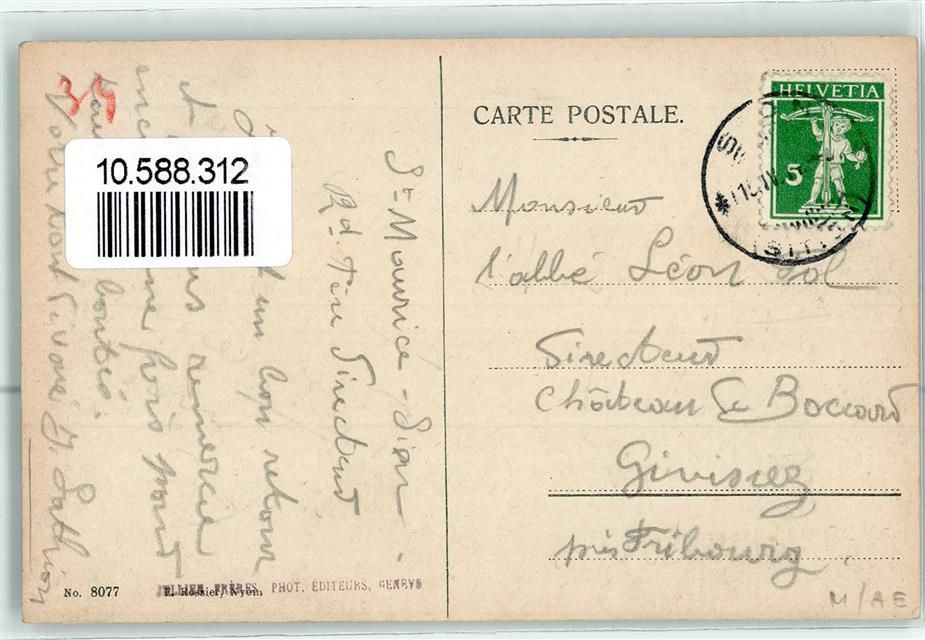 CARTE POSTALE.
HELVETIA
5
Monsieur
l'abbé Léon
Directeur
Château de Boccard
Givisiez
près Fribourg
35
10.588.312
St Maurice - Sion -
Rd. Père Directeur
un bon retour
remercie
fois pour
bontés.
Votre tout dévoué J.
No. 8077
E. Rossier, Nyon.
JULLIEN FRÈRES, PHOT. ÉDITEURS, GENÈVE
M/AE